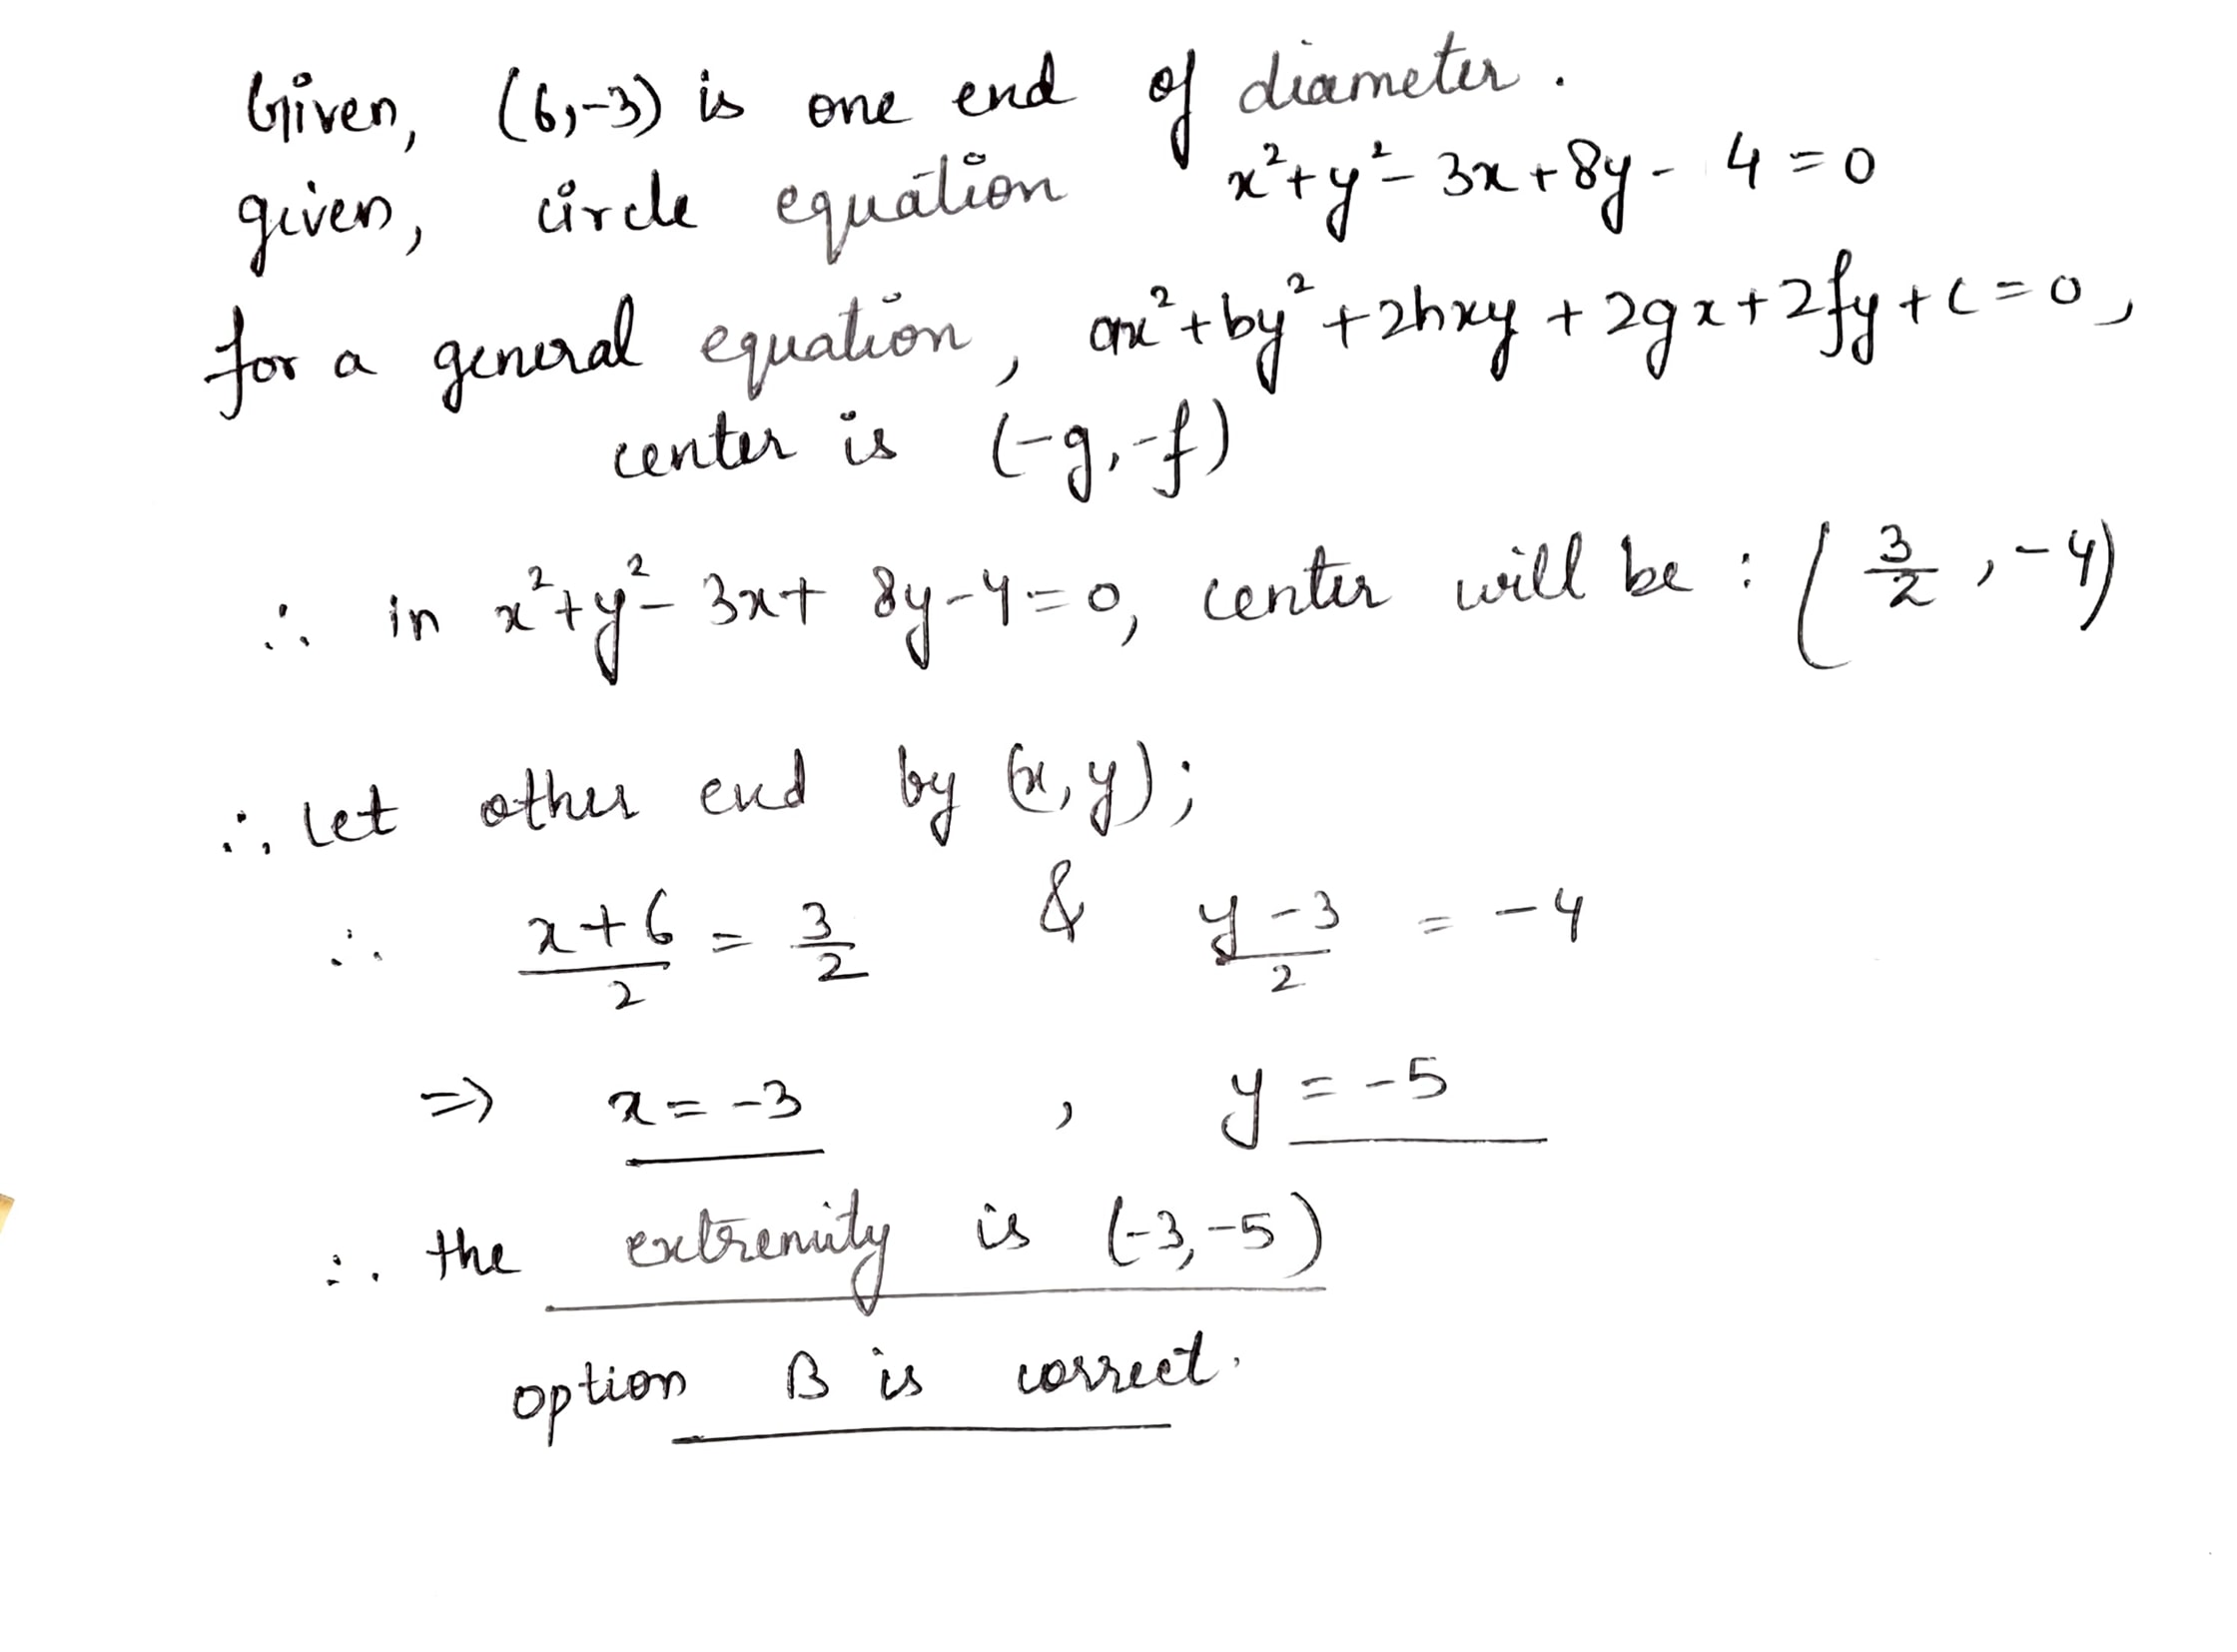 Given, (6,-3) is one end of diameter.
given, circle equation x²+y²-3x+8y-4=0
for a general equation, ax²+by²+2hxy+2gx+2fy+c=0,
center is (-g,-f)
∴ in x²+y²-3x+8y-4=0, center will be : (3/2, -4)
∴ let other end by (x,y);
∴ (x+6)/2 = 3/2 & (y-3)/2 = -4
⇒ x=-3 , y=-5
∴ the extremity is (-3,-5)
option B is correct.